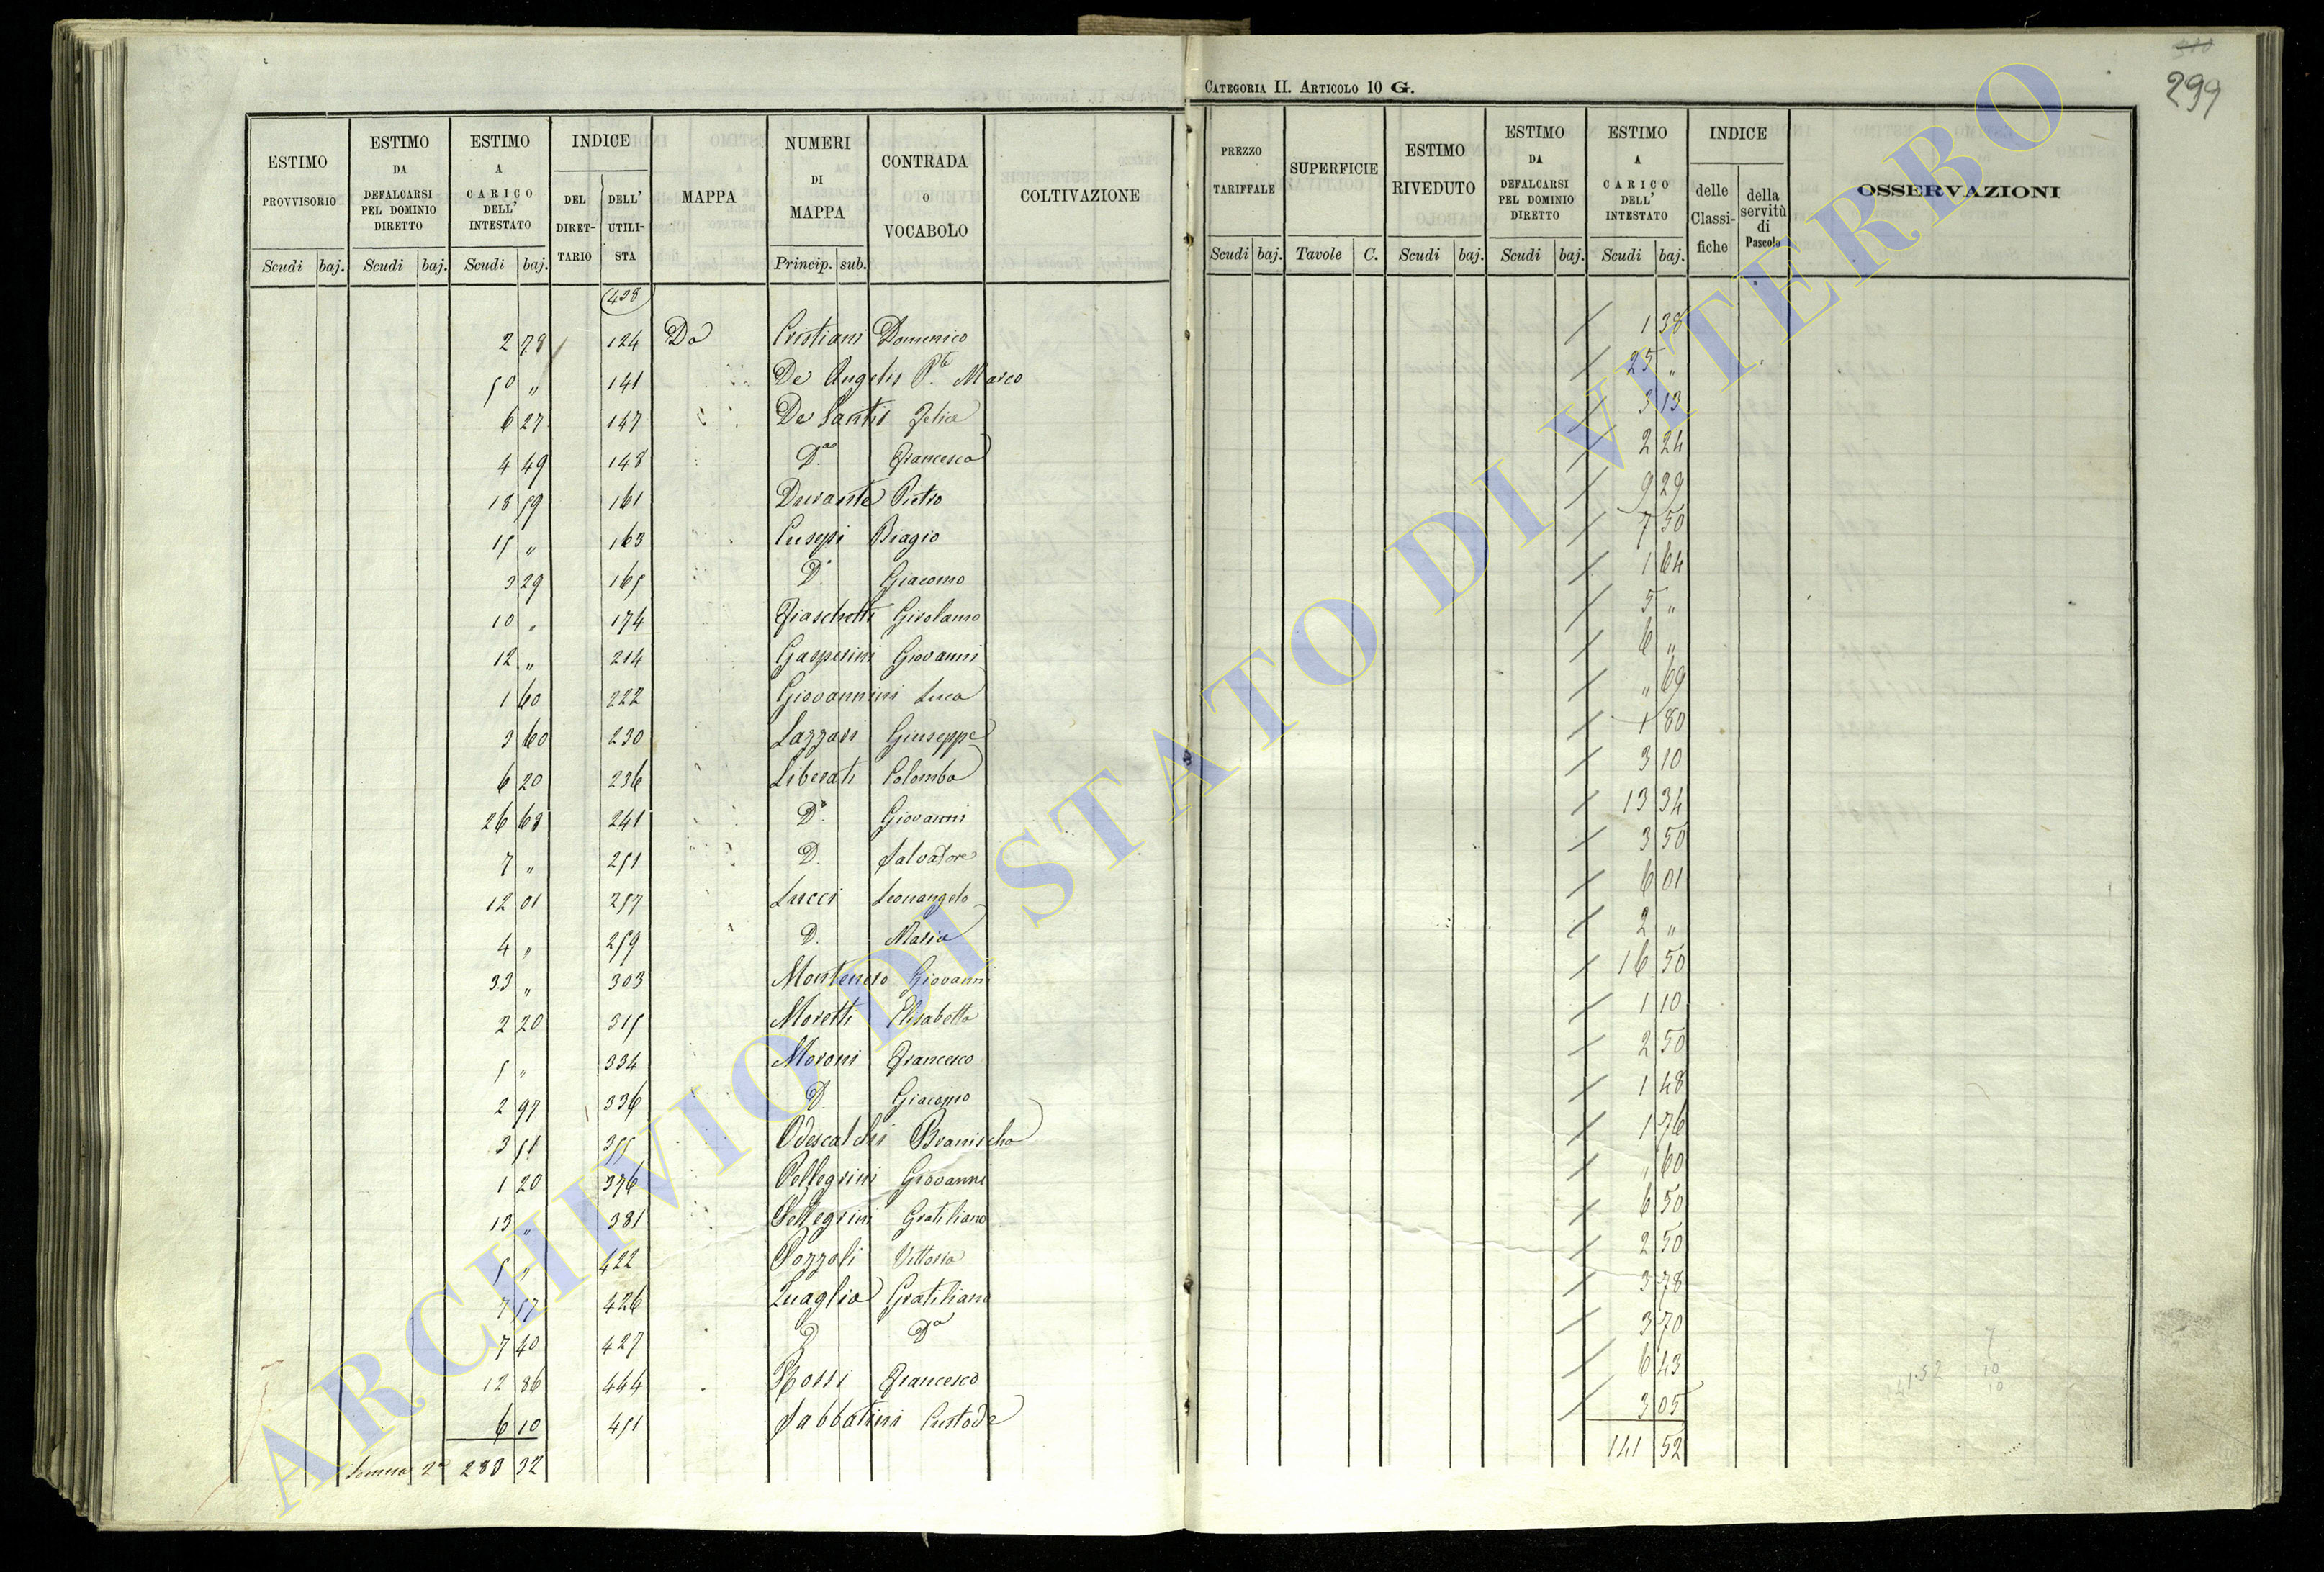 CATEGORIA II. ARTICOLO 10 G.
310
299
ESTIMO PROVVISORIO
ESTIMO DA DEFALCARSI PEL DOMINIO DIRETTO
ESTIMO A CARICO DELL' INTESTATO
INDICE
DEL DIRET-TARIO
DELL' UTILI-STA
MAPPA
NUMERI DI MAPPA
CONTRADA o VOCABOLO
COLTIVAZIONE
PREZZO TARIFFALE
SUPERFICIE
ESTIMO RIVEDUTO
ESTIMO DA DEFALCARSI PEL DOMINIO DIRETTO
ESTIMO A CARICO DELL' INTESTATO
INDICE
delle Classi-fiche
della servitù di Pascolo
OSSERVAZIONI
Scudi baj. Scudi baj. Scudi baj. Princip. sub.
Scudi baj. Tavole C. Scudi baj. Scudi baj. Scudi baj.
(408)
2 78 / 124 Da Cristiani Domenico / 1 38
50 „ 141 De Angelis Pte Marco / 25 „
6 27 147 De Santis Felice / 3 13
4 49 148 Da Francesca / 2 24
18 59 161 Durante Pietro / 9 29
15 „ 163 Cusepi Biagio / 7 50
3 29 165 D° Giacomo / 1 64
10 „ 174 Fiaschetti Girolamo / 5 „
12 „ 214 Gasperini Giovanni / 6 „
1 60 222 Giovannini Luca / „ 69
3 60 230 Lazzari Giuseppe / 1 80
6 20 236 Liberati Colomba / 3 10
26 68 241 D° Giovanni / 13 34
7 „ 251 D. Salvatore / 3 50
12 01 257 Lucci Leonangelo / 6 01
4 „ 259 D. Maria / 2 „
33 „ 303 Montenero Giovanni / 16 50
2 20 315 Moretti Elisabetta / 1 10
5 „ 334 Moroni Francesco / 2 50
2 97 336 D. Giacomo / 1 48
3 51 355 Odescalchi / 1 76
1 20 376 Pellegrini Giovanni / „ 60
13 „ 381 Pellegrini Gratiliano / 6 50
5 „ 422 Pozzoli Vittoria / 2 50
7 57 426 Quaglia Gratiliano / 3 78
7 40 427 D Da / 3 70
12 86 444 Rossi Francesco / 6 43
6 10 451 Sabbatini Custode / 3 05
Somma 2a 283 32
141 52
141.52
7
10
10
ARCHIVIO DI STATO DI VITERBO